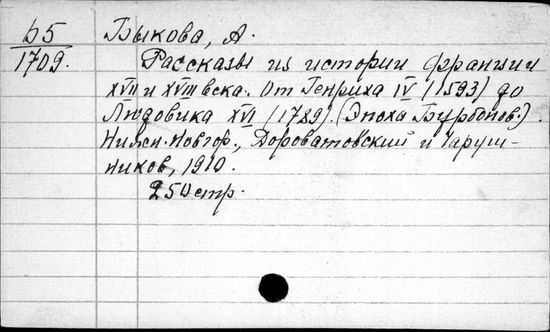 Б5
1709.
Быкова, А.
Рассказы из истории Франции
XVII и XVIII века. От Генриха IV (1593) до
Людовика XVI (1789). (Эпоха Бурбонов.)
Нижн.-Новгор., Дороватовский и Чаруш-
ников, 1910.
250 стр.